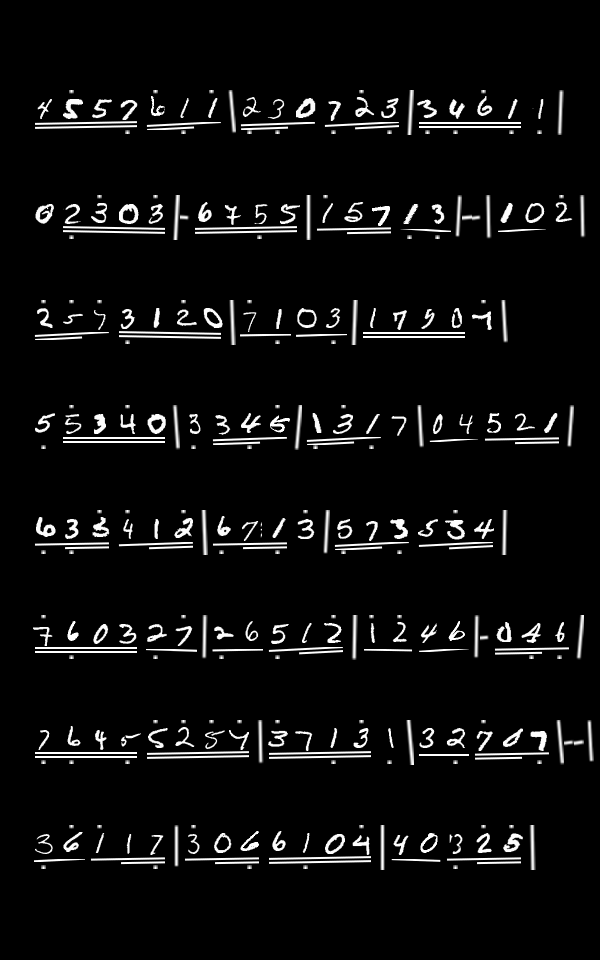 4 5 5 7 6 1 1 | 2 3 0 7 2 3 | 3 4 6 1 1 |
0 2 3 0 3 | - 6 7 5 5 | 1 5 7 1 3 | - - | 1 0 2 |
2 5 5 3 1 2 0 | 7 1 0 3 | 1 7 5 0 7 |
5 5 3 4 0 | 3 3 4 5 | 1 3 1 7 | 0 4 5 2 1 |
6 3 3 4 1 2 | 6 7 1 3 | 5 7 3 5 3 4 |
7 6 0 3 2 7 | 2 6 5 1 2 | 1 2 4 6 | - 0 4 6 |
7 6 4 5 5 2 5 4 | 3 7 1 3 1 | 3 2 7 0 7 | - - |
3 6 1 1 7 | 3 0 6 6 1 0 4 | 4 0 3 2 5 |